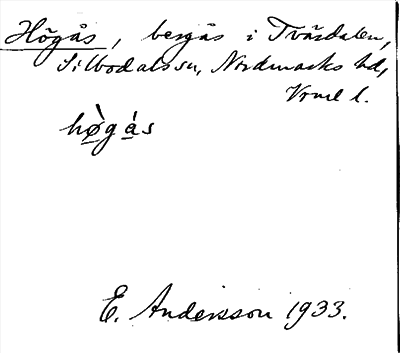 Högås, bergås i Tvärdalen,
Silbodals sn, Nordmarks hd,
Vrml l.
hø̀gás
E. Andersson 1933.